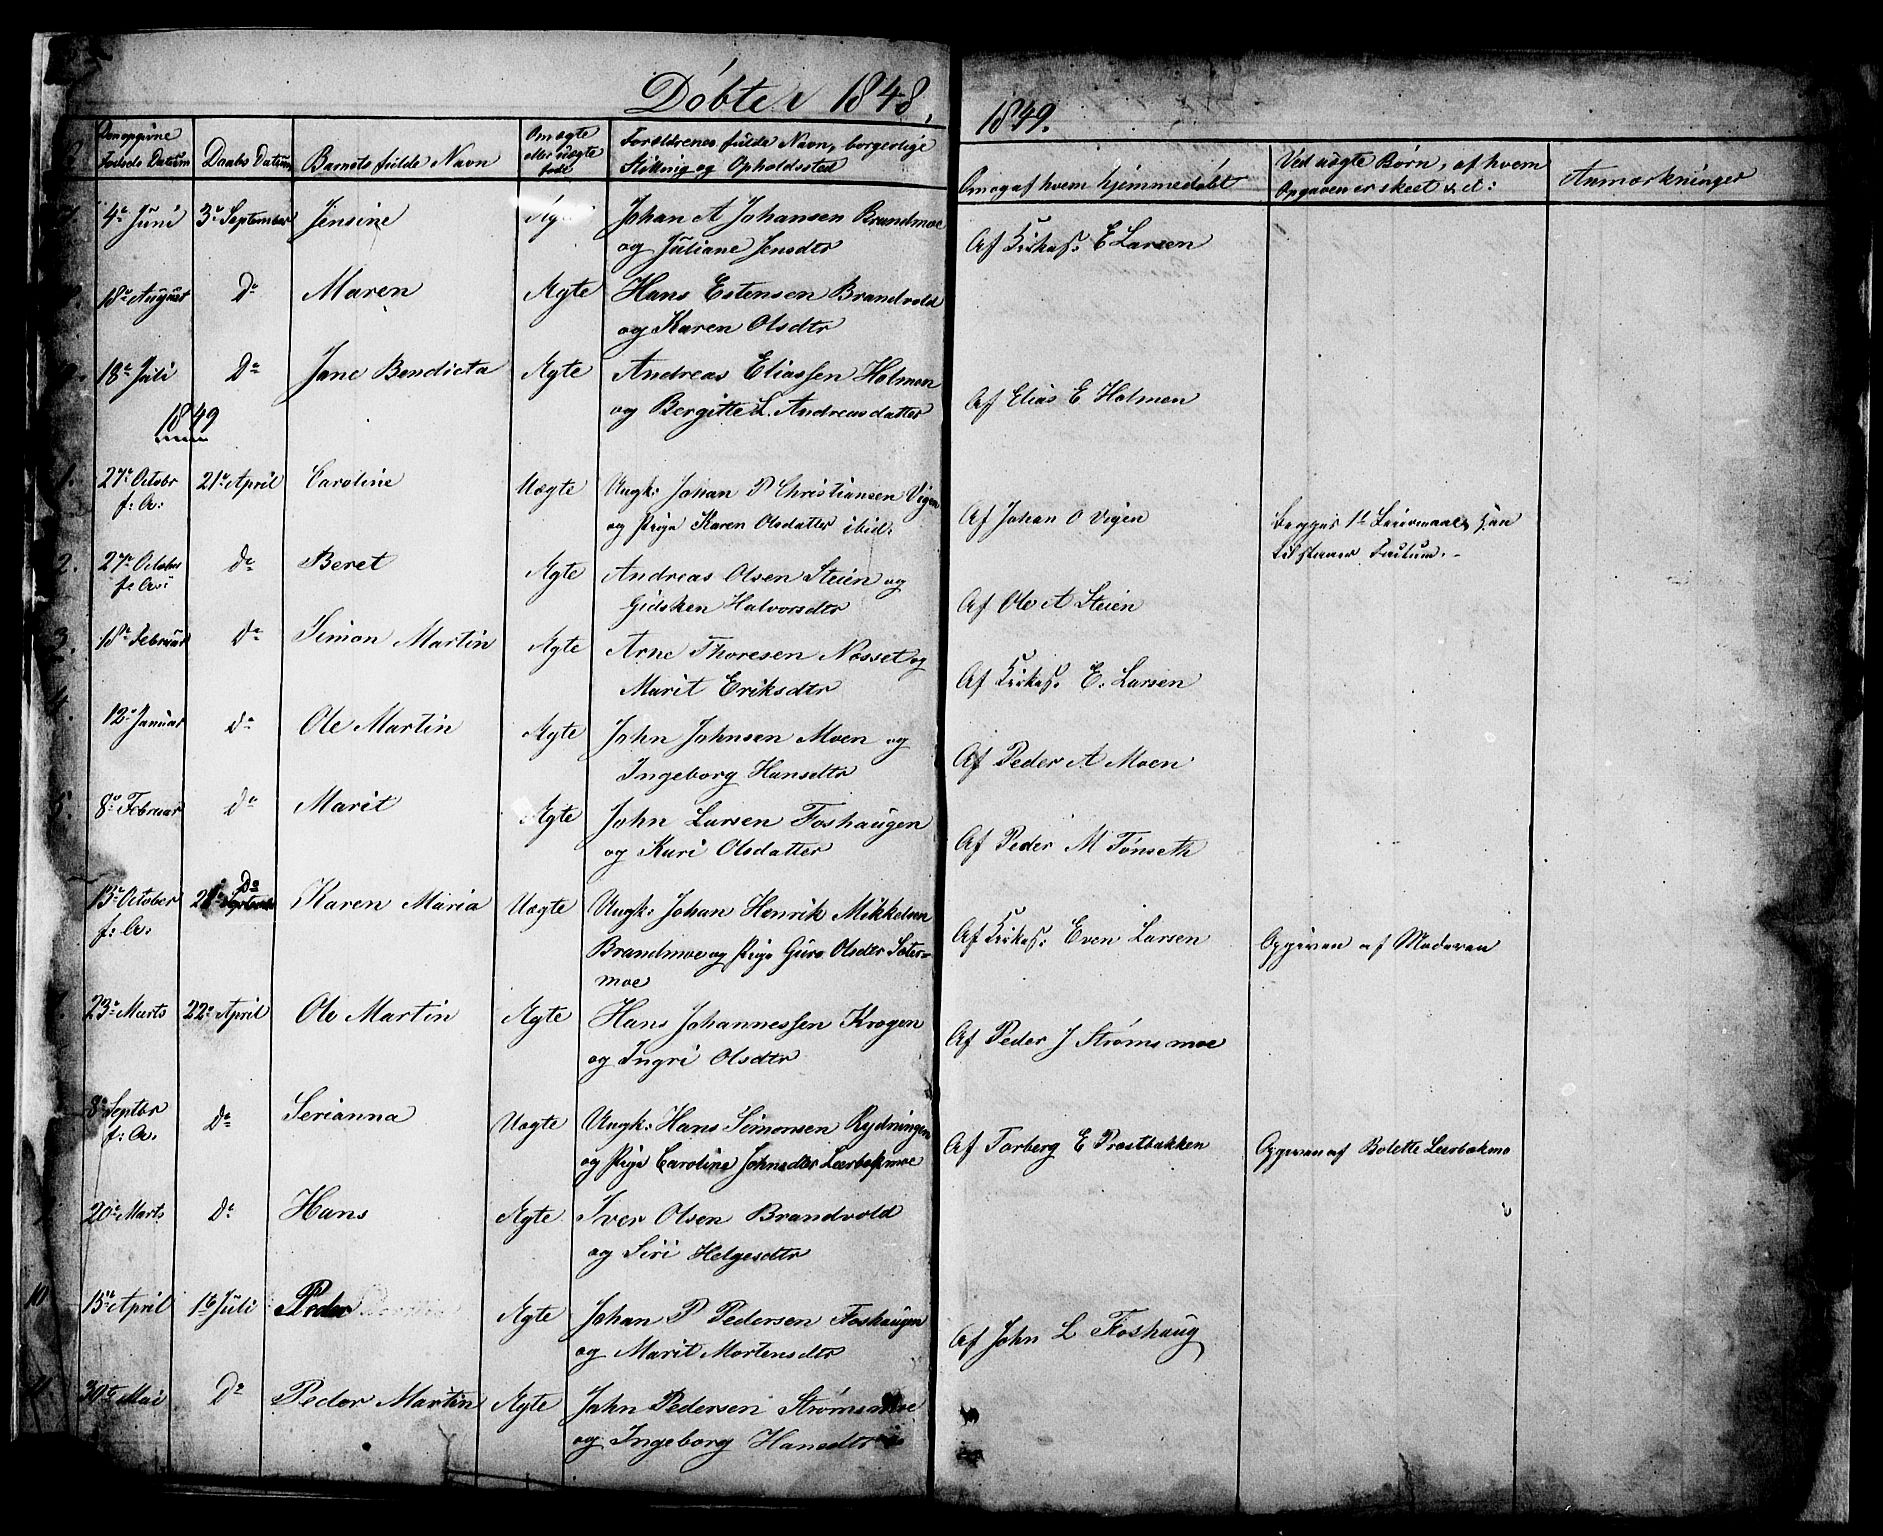 Døbte 1848,
1849.
Den opgivne Fødsels Datum | Daabs Datum | Barnets fulde Navn | Om ægte eller uægte født | Forældrenes fulde Navn, borgerlige Stilling og Opholdssted | Om og af hvem hjemmedøbt | Ved uægte Børn, af hvem Opgaven er skeet &c: | Anmærkninger
7. 4de Juni | 3de September | Jensine | Ægte | Johan A Johansen Brandmoe
og Juliane Jensdtr | Af Kirkes: E Larsen
18de August | Do | Maren | Ægte | Hans Estensen Brandvold
og Karen Olsdtr
9. 18de Juli | Do | Jane Bendicta | Ægte | Andreas Eliassen Holmen
og Bergitte L. Andreasdatter | Af Elias E Holmen
1849
1. 27de Octobr f: A: | 21de April | Caroline | Uægte | Ungk: Johan P Christiansen Vigen
og Pige Karen Olsdatter ibid. | Af Johan O Vigen | Begges 1ste Leiermaal, han
tilstaaer Factum. -
2. 27de October f: A: | do | Beret | Ægte | Andreas Olsen Steien og
Gidsken Halvorsdtr | Af Ole A Steien
3. 18de Februar | Do | Simon Martin | Ægte | Arne Thoresen Nesset og
Marit Eriksdtr | Af Kirkes: E. Larsen
4. 12te Januar | do | Ole Martin | Ægte | John Johnsen Moen og
Ingeborg Hansdtr | Af Peder A Moen
5. 8de Februar | Do | Marit | Ægte | John Larsen Foshaugen
og Kari Olsdatter | Af Peder M Tønseth
13de October f: A: | Do | Karen Maria | Uægte | Ungk: Johan Henrik Mikkelsen
Brandmoe og Pige Guro Olsdtr Sæter-
moe | Af Kirkes: Even Larsen | Opgiven af Moderen
7. 23de Marts | 22de April | Ole Martin | Ægte | Hans Johannessen Krogen
og Ingri Olsdtr | Af Peder J Strømsmoe
8de Septbr f: A: | Do | Serianna | Uægte | Ungk: Hans Simonsen Rydningen
og Pige Caroline Johnsdtr Leerbakmoe | Af Torberg E Prostbakken | Opgiven af Bolette Leerbakmo
20de Marts | Do | Hans | Ægte | Iver Olsen Brandvold
og Siri Helgesdtr
10 15de April | 1te Juli | Peder | Ægte | Johan P Pedersen Foshaugen
og Marit Mortensdtr | Af John L Foshaug
11 30te Mai | Do | Peder Martin | Ægte | John Pedersen Strømsmoe
og Ingeborg Hansdtr